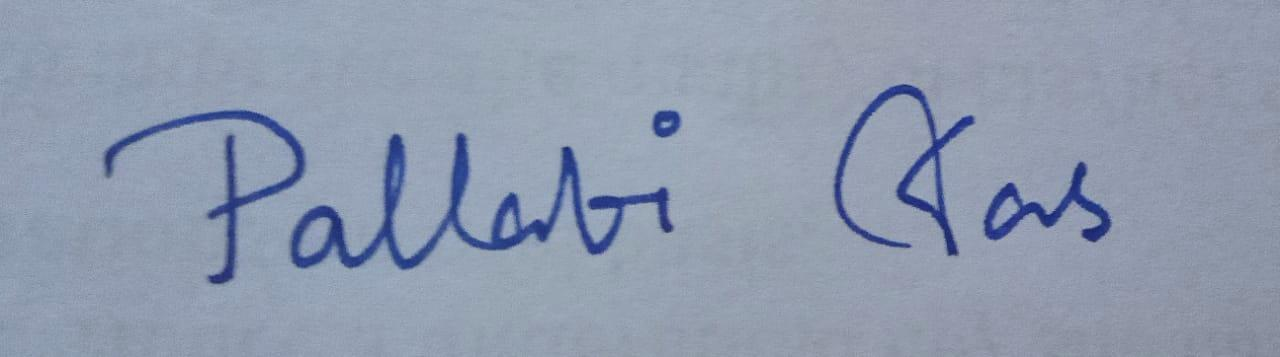 Pallabi Kars